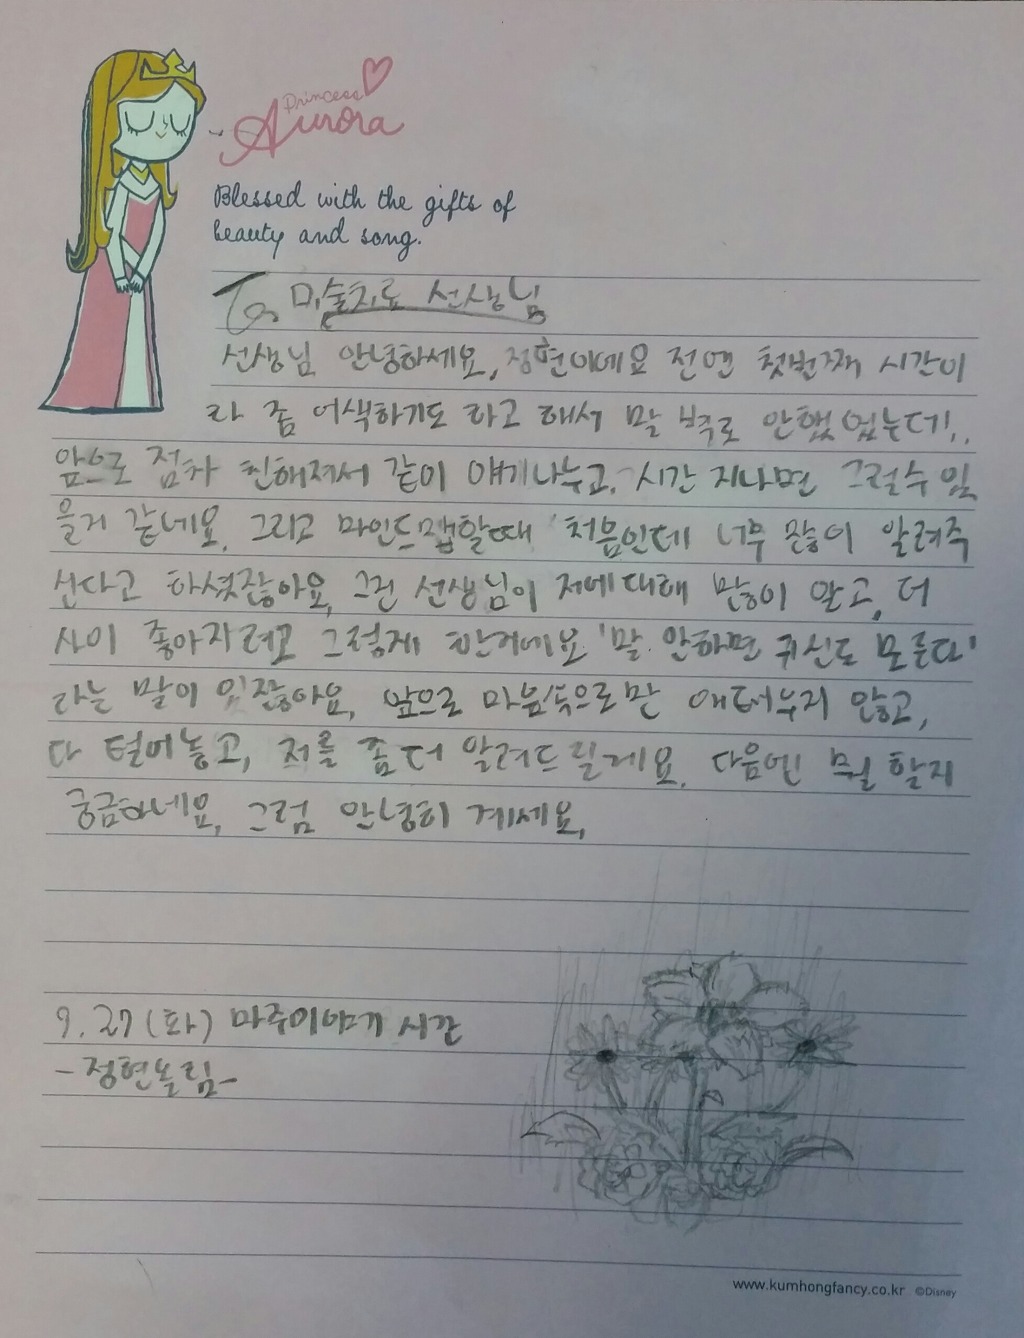 Princess
Aurora
Blessed with the gifts of
beauty and song.
To. 미술치료 선생님
선생님 안녕하세요, 정현이에요 전엔 첫번째 시간이
라 좀 어색하기도 하고 해서 말 별로 안했었는데..
앞으로 점차 친해져서 같이 얘기나누고, 시간 지나면 그럴수 있
을거 같네요. 그리고 마인드맵할때 '처음인데 너무 많이 알려주
신다고 하셨잖아요, 그건 선생님이 저에대해 많이 알고, 더
사이 좋아지려고 그렇게 한거에요 '말 안하면 귀신도 모른다'
라는 말이 있잖아요, 앞으로 마음속으로만 애태우지 않고,
다 털어놓고, 저를 좀 더 알려드릴게요. 다음엔 뭘 할지
궁금하네요, 그럼 안녕히 계세요,
9. 27 (화) 마주이야기 시간
-정현올림-
www.kumhongfancy.co.kr ©Disney